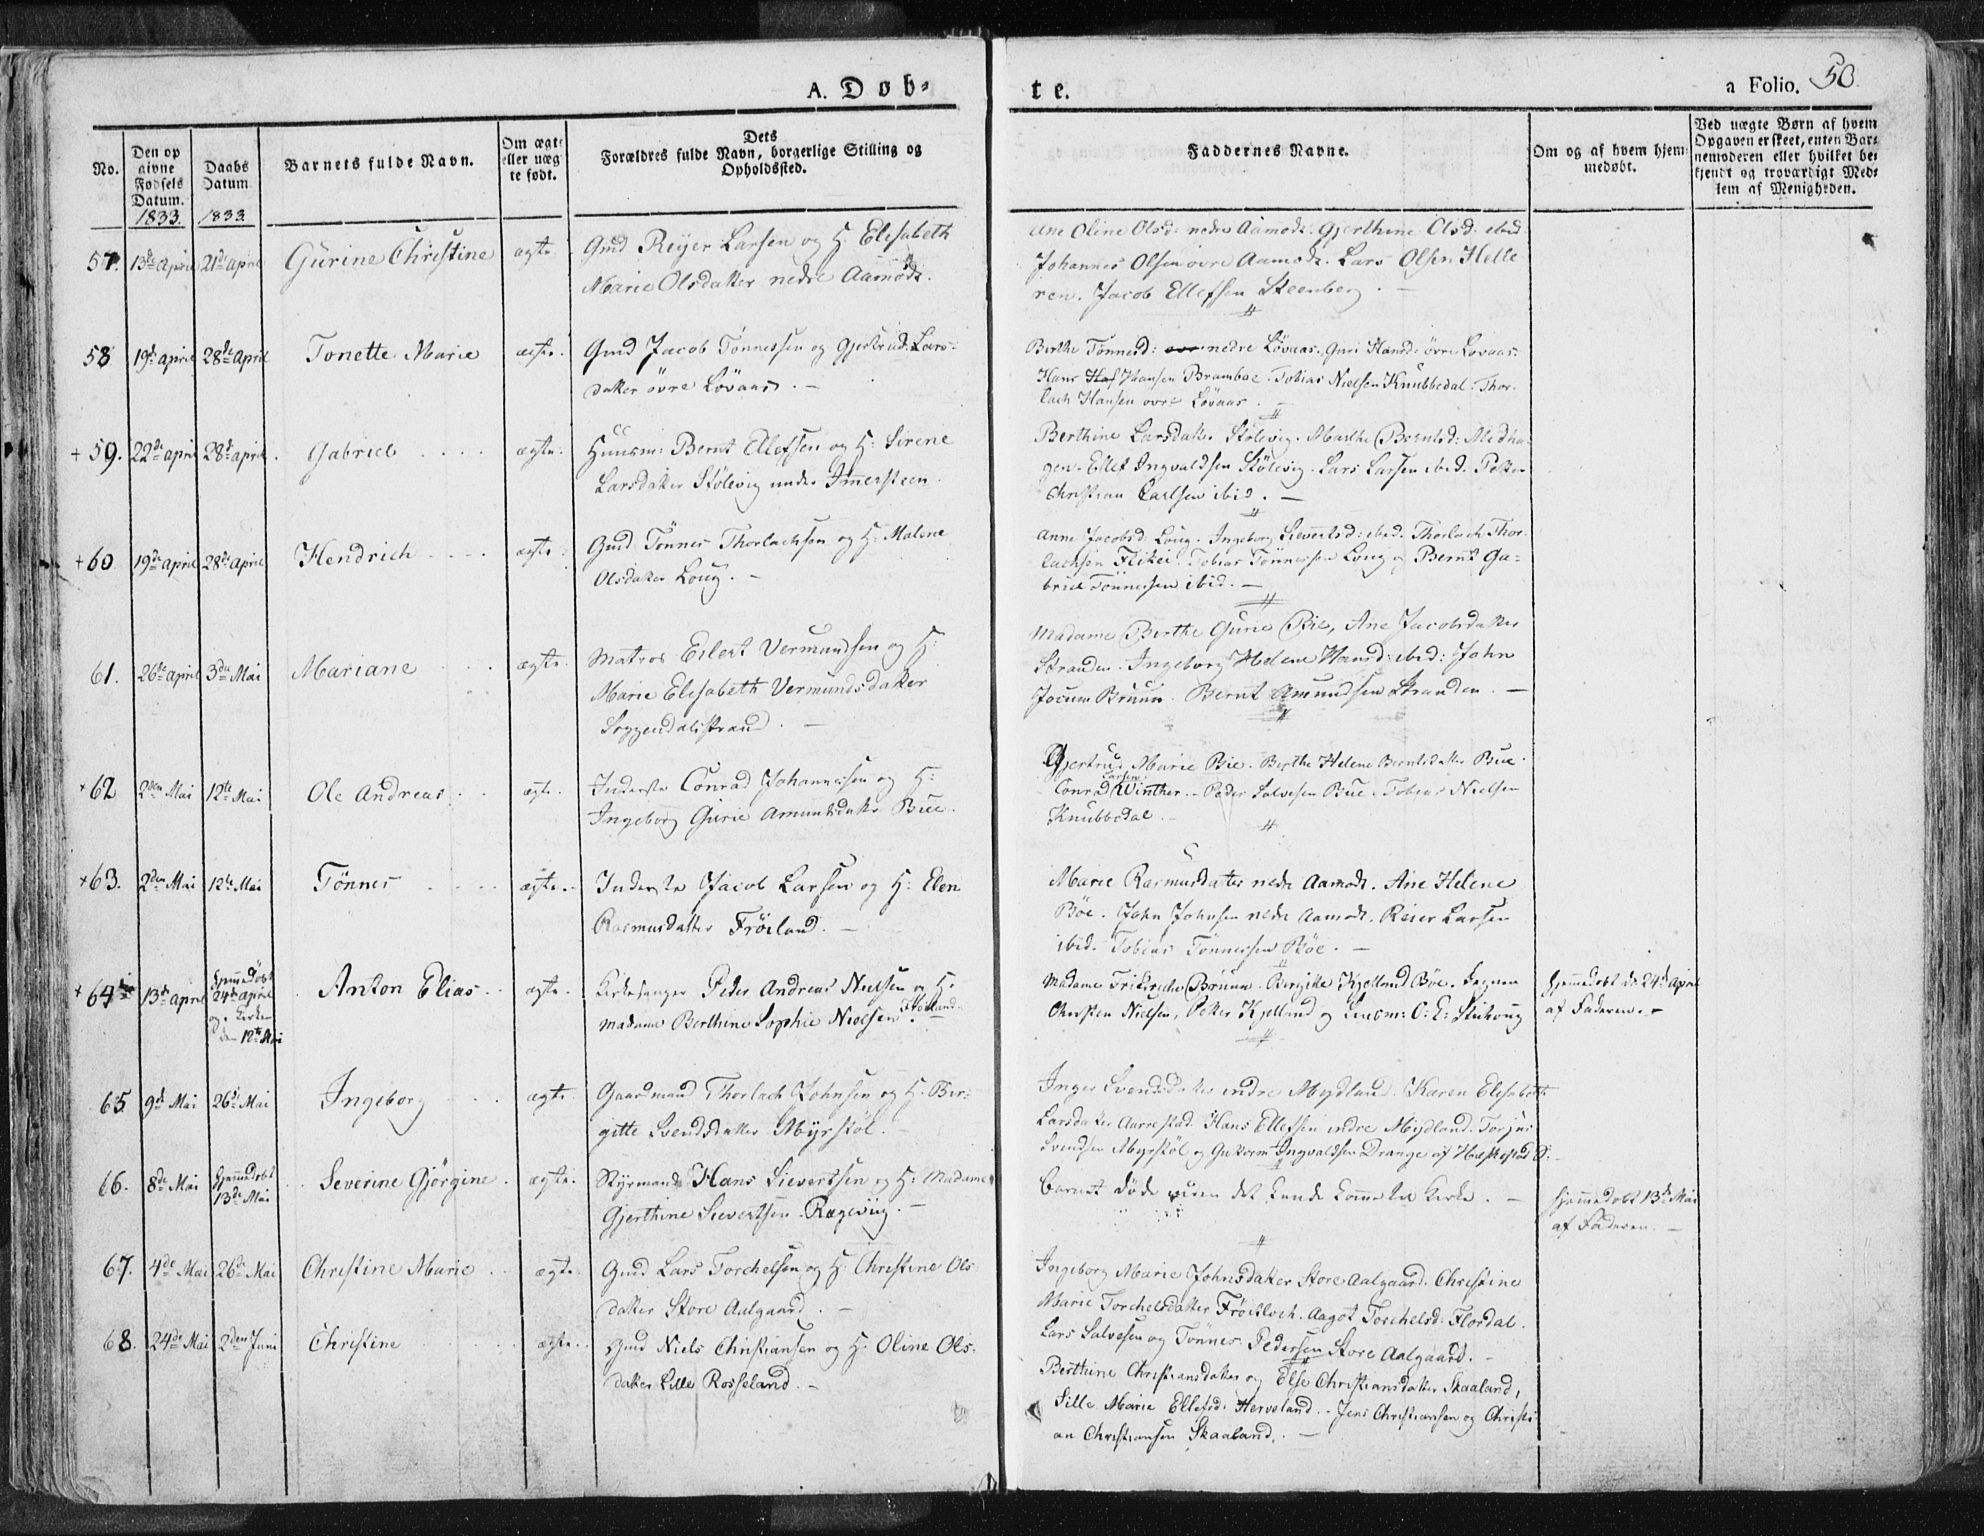 A. Døb-
te.
a Folio. 50
No.
Den opgivne Fødsels Datum.
1833.
Daabs Datum
1833
Barnets fulde Navn.
Om ægte eller uægte født.
Dets Forældres fulde Navn, borgerlige Stilling og Opholdssted.
Faddernes Navne.
Om og af hvem hjemmedøbt.
Ved uægte Børn af hvem Opgaven er skeet, enten Barnemoderen eller hvilket bekjendt og troværdigt Medlem af Menigheden.
57. 13de April 21de April Gurine Christine ægte.
Gmd Reijer Larsen og H. Elisabeth
Marie Olsdatter nedre Aamodt.
Ane Oline Olsd: nedre Aamodt. Gjerthine Olsd. ibid
Johannes Olsen øvre Aamodt. Lars Olsen Helle
ren. Jacob Ellefsen Steenberg. —
58 19de April 28de April Tonette Marie ægte.
Gmd Jacob Tønnessen og Gjertrud Lars-
datter øvre Løvaas. —
Berthe Tønnesd: nedre Løvaas. Guri Hansd: øvre Lovaas.
Hans Hansen Bramboe. Tobias Nielsen Knubbedal. Thor-
lach Hansen øvre Lovaas. —
+ 59. 22de April 28de April Gabriel ægte.
Huusm: Bernt Ellefsen og H: Sirene
Larsdatter Stølevig under Immersteen.
Berthine Larsdatter Stølevig. Marthe Berntsd: Medha-
gen. Ellef Ingvaldsen Stølevig. Lars Larsen ibid. Petter
Christian Carlsen ibid. —
+ 60 19de April 28de April Hendrich ægte.
Gmd. Tønnes Thorlachsen og H: Malene
Olsdatter Loug. —
Anne Jacobsd: Loug. Ingeborg Sievertsd: ibid. Thorlach Thor-
lachsen Flikei. Tobias Tønnessen Loug og Bernt Ga-
briel Tønnessen ibid. —
61. 26de April 3die Mai Mariane ægte.
Matros Eilert Vermundsen og H:
Marie Elisabeth Vermundsdatter
Soggendalsstrand. —
Madame Berthe Gurie Bie, Ane Jacobsdatter
Stranden. Ingeborg Helene Hansd: ibid: John
Jocum Bruun. Bernt Amundsen Stranden. —
+ 62 2den Mai 12te Mai Ole Andreas ægte.
Inderste Conrad Johannessen og H:
Ingeborg Gurie Amundsdatter Bue.
Gjertrud Marie Bie. Berthe Helene Berntsdatter Bue.
Conrad Larsen Winther. Peder Salvesen Bue. Tobias Nielsen
Knubbedal. —
+ 63. 2den Mai 12te Mai Tönnes ægte.
Inderste Jacob Larsen og H: Elen
Rasmusdatter Fröiland. —
Marie Rasmusdatter nedre Aamodt. Ane Helene
Böe. John Johnsen nedre Aamodt. Reier Larsen
ibid. Tobias Tönnessen Böe. —
+ 64 13de April Hjemmedøbt 24de April og i Kirken den 12te Mai Anton Elias ægte.
Kirkesanger Peder Andreas Nielsen og H:
Madame Berthine Sophie Nielsen Fröiland. —
Madame Friderche Bruun. Bergitte Kjelland Böe.
Christen Nielsen, Petter Kjelland og
Hjemmedøbt de 24de April
af Faderen. —
65 9de Mai 26de Mai Ingeborg ægte.
Gaardmand Thorlach Johnsen og H. Bir-
gitte Svendsdatter Myrstøl. —
Inger Svendsdatter indre Mydland. Karen Elisabeth
Larsdatter Aarrestad. Hans Ellefsen indre Mydland. Torjus
Svendsen Myrstøl og Guttorm Ingvaldsen Drange af Heskestad S: —
66. 8de Mai Hjemmedøbt 13de Mai Severine Gjørgine ægte.
Styrmand Hans Sievertsen og H: Madame
Gjerthine Sievertsen. Rægeviig. —
Barnet døde inden det kunde komme til Kirke. —
Hjemmedøbt 13de Mai
af Faderen. —
67. 4de Mai 26de Mai Christine Marie ægte.
Gmd Lars Torchelsen og H: Christine Ols
datter Store Aalgaard. —
Ingeborg Marie Johnsdatter Store Aalgaard. Christine
Marie Torchelsdatter Fröitloch. Aagot Torchelsd: Flordal.
Lars Salvesen og Tönnes Pedersen Store Aalgaard. —
68. 24de Mai 2den Juni Christine ægte.
Gmd Niels Christiansen og H: Oline Ols-
datter Lille Rosseland. —
Berthine Christiansdatter og Else Christiansdatter Skaaland,
Sille Marie Ellefsd: Herveland. Jens Christiansen og Christi-
an Christiansen Skaaland. —